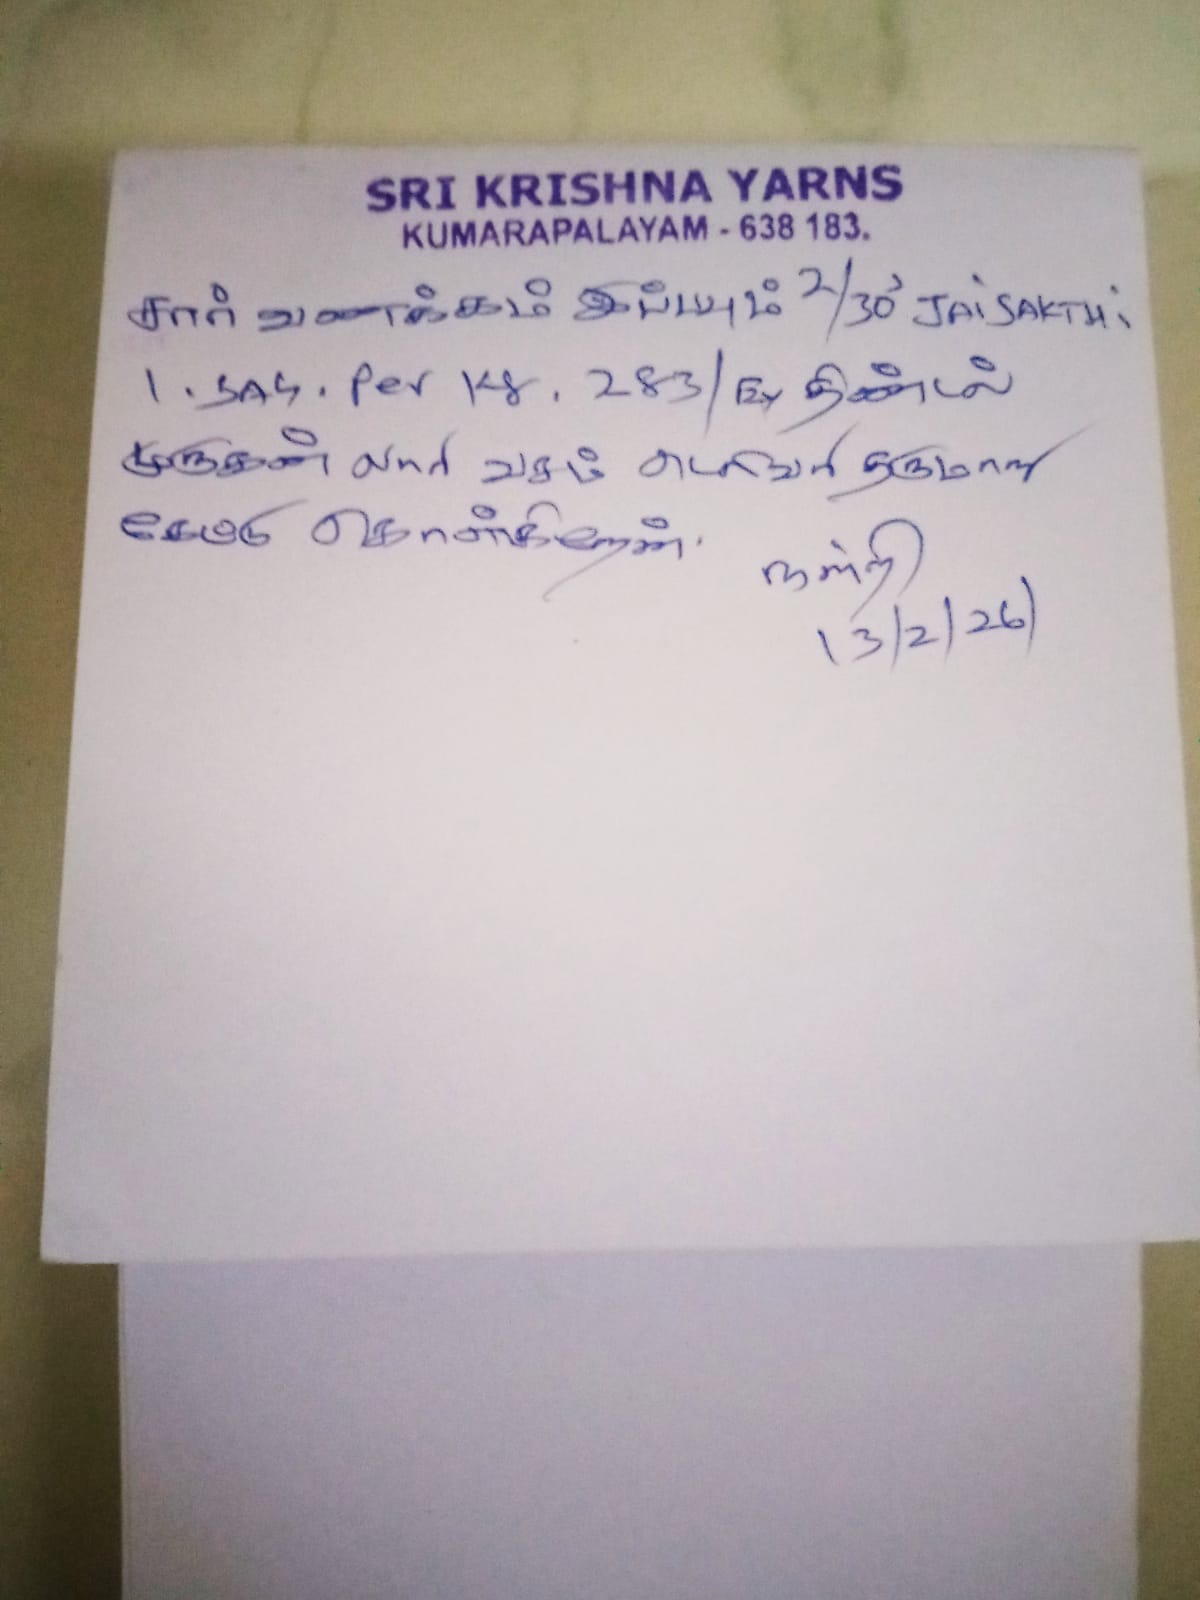 SRI KRISHNA YARNS
KUMARAPALAYAM - 638 183.
சார் வணக்கம் இப்பவும் 2/30s JAISAKTHi
1. BAG. Per Kg. 283/ Ex திண்டல்
முருகன் லாரி வசம் டெலிவரி தருமாறு
கேட்டு கொள்கிறேன்.
நன்றி
13/2/26